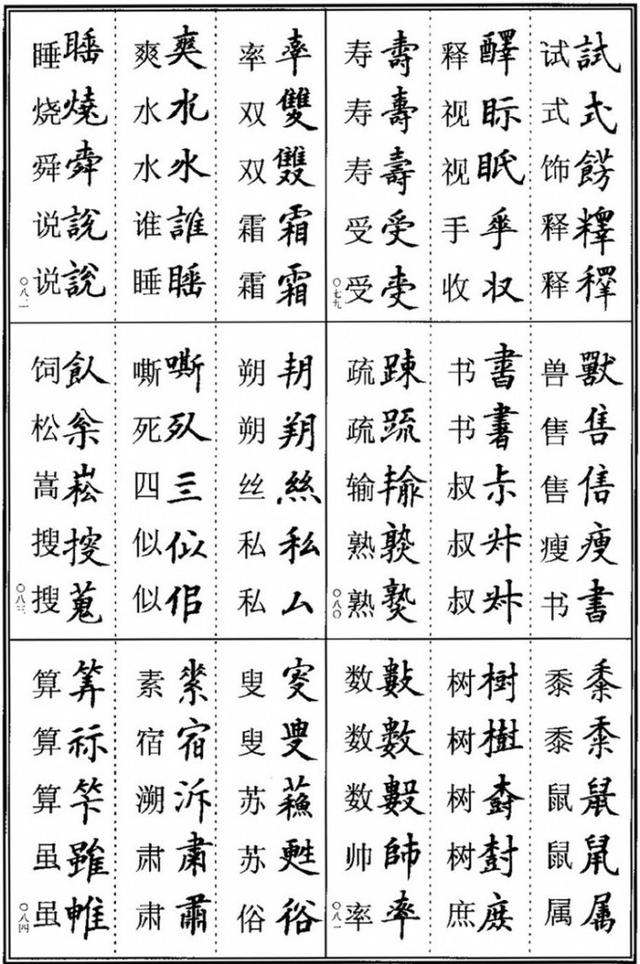 试試 式式 饰餝 释 释
释醳 视眎 视眂 手 收収
寿壽 寿壽 寿壽 受受 受
〇七九
兽獸 售售 售 瘦瘦 书書
书書 书書 叔尗 叔 叔
疏踈 疏䟽 输輸 熟 熟
〇八〇
黍黍 黍 鼠鼠 鼠 属属
树樹 树樹 树 树尌 庶庻
数數 数數 数 帅帥 率率
〇八一
率率 双雙 双 霜霜 霜霜
爽爽 水水 水水 谁誰 睡睡
睡睡 烧燒 舜舜 说說 说説
〇八二
朔 朔朔 丝絲 私私 私厶
嘶嘶 死 四亖 似似 似佀
饲飤 松枩 嵩崧 搜 搜蒐
〇八三
叟叜 叟 苏蘓 苏甦 俗俗
素 宿宿 溯泝 肃肅 肃
算筭 算祘 算 虽雖 虽
〇八四